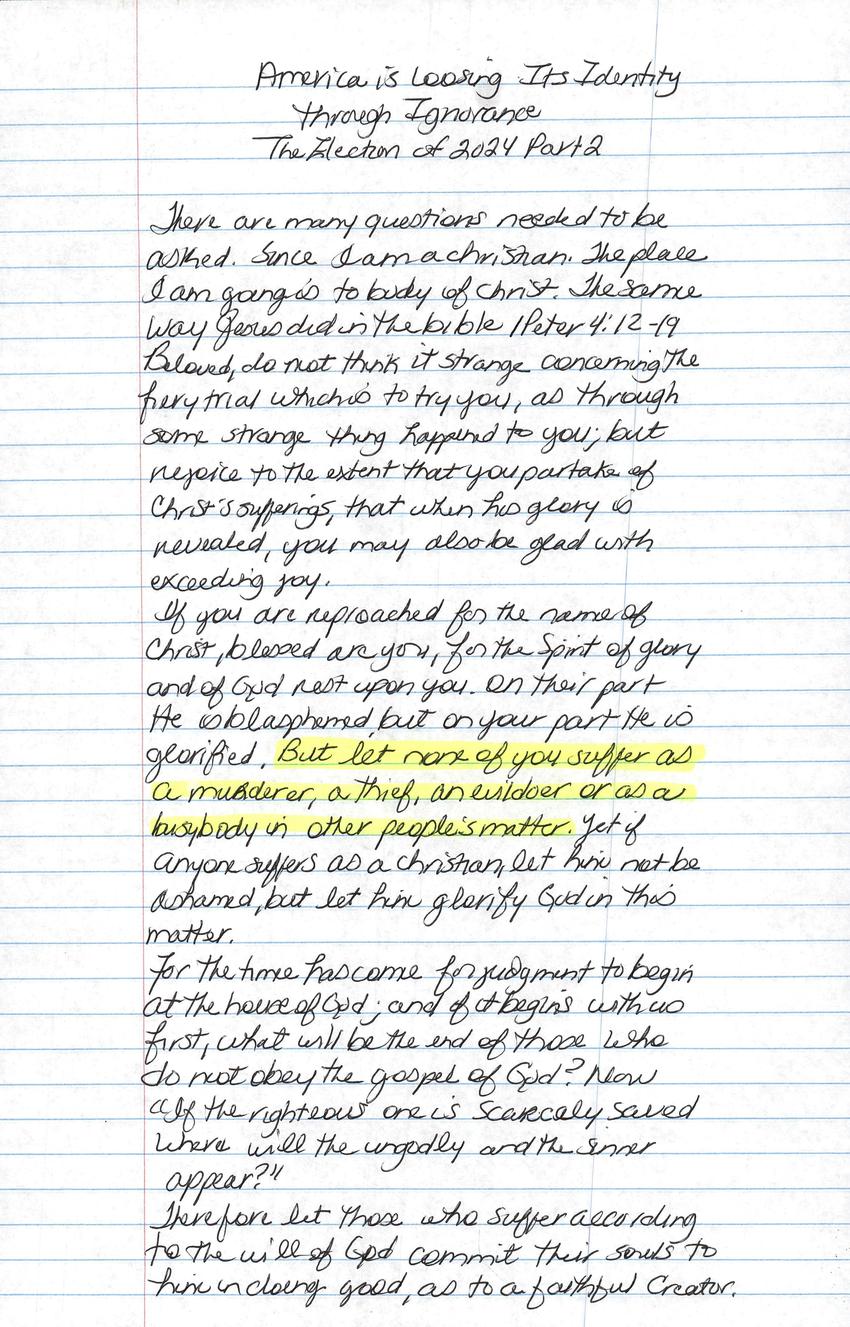 America is Loosing Its Identity
through Ignorance
The Election of 2024 Part 2
There are many questions needed to be
asked. Since I am a christian. The place
I am going is to body of Christ. The same
way Jesus did in the bible 1 Peter 4:12-19
Beloved, do not think it strange concerning the
fiery trial which is to try you, as through
some strange thing happend to you; but
rejoice to the extent that you partake of
Christ's sufferings, that when his glory is
revealed, you may also be glad with
exceeding joy.
If you are reproached for the name of
Christ, blessed are you, for the Spirit of glory
and of God rest upon you. On their part
He is blasphemed, but on your part He is
glorified. But let none of you suffer as
a murderer, a thief, an evildoer or as a
busybody in other people's matter. Yet if
anyone suffers as a christian, let him not be
ashamed, but let him glorify God in this
matter.
For the time has come for judgment to begin
at the house of God; and if it begins with us
first, what will be the end of those who
do not obey the gospel of God? Now
"If the righteous one is scarecaly saved
where will the ungodly and the sinner
appear?"
Therefore let those who suffer according
to the will of God commit their souls to
him in doing good, as to a faithful Creator.